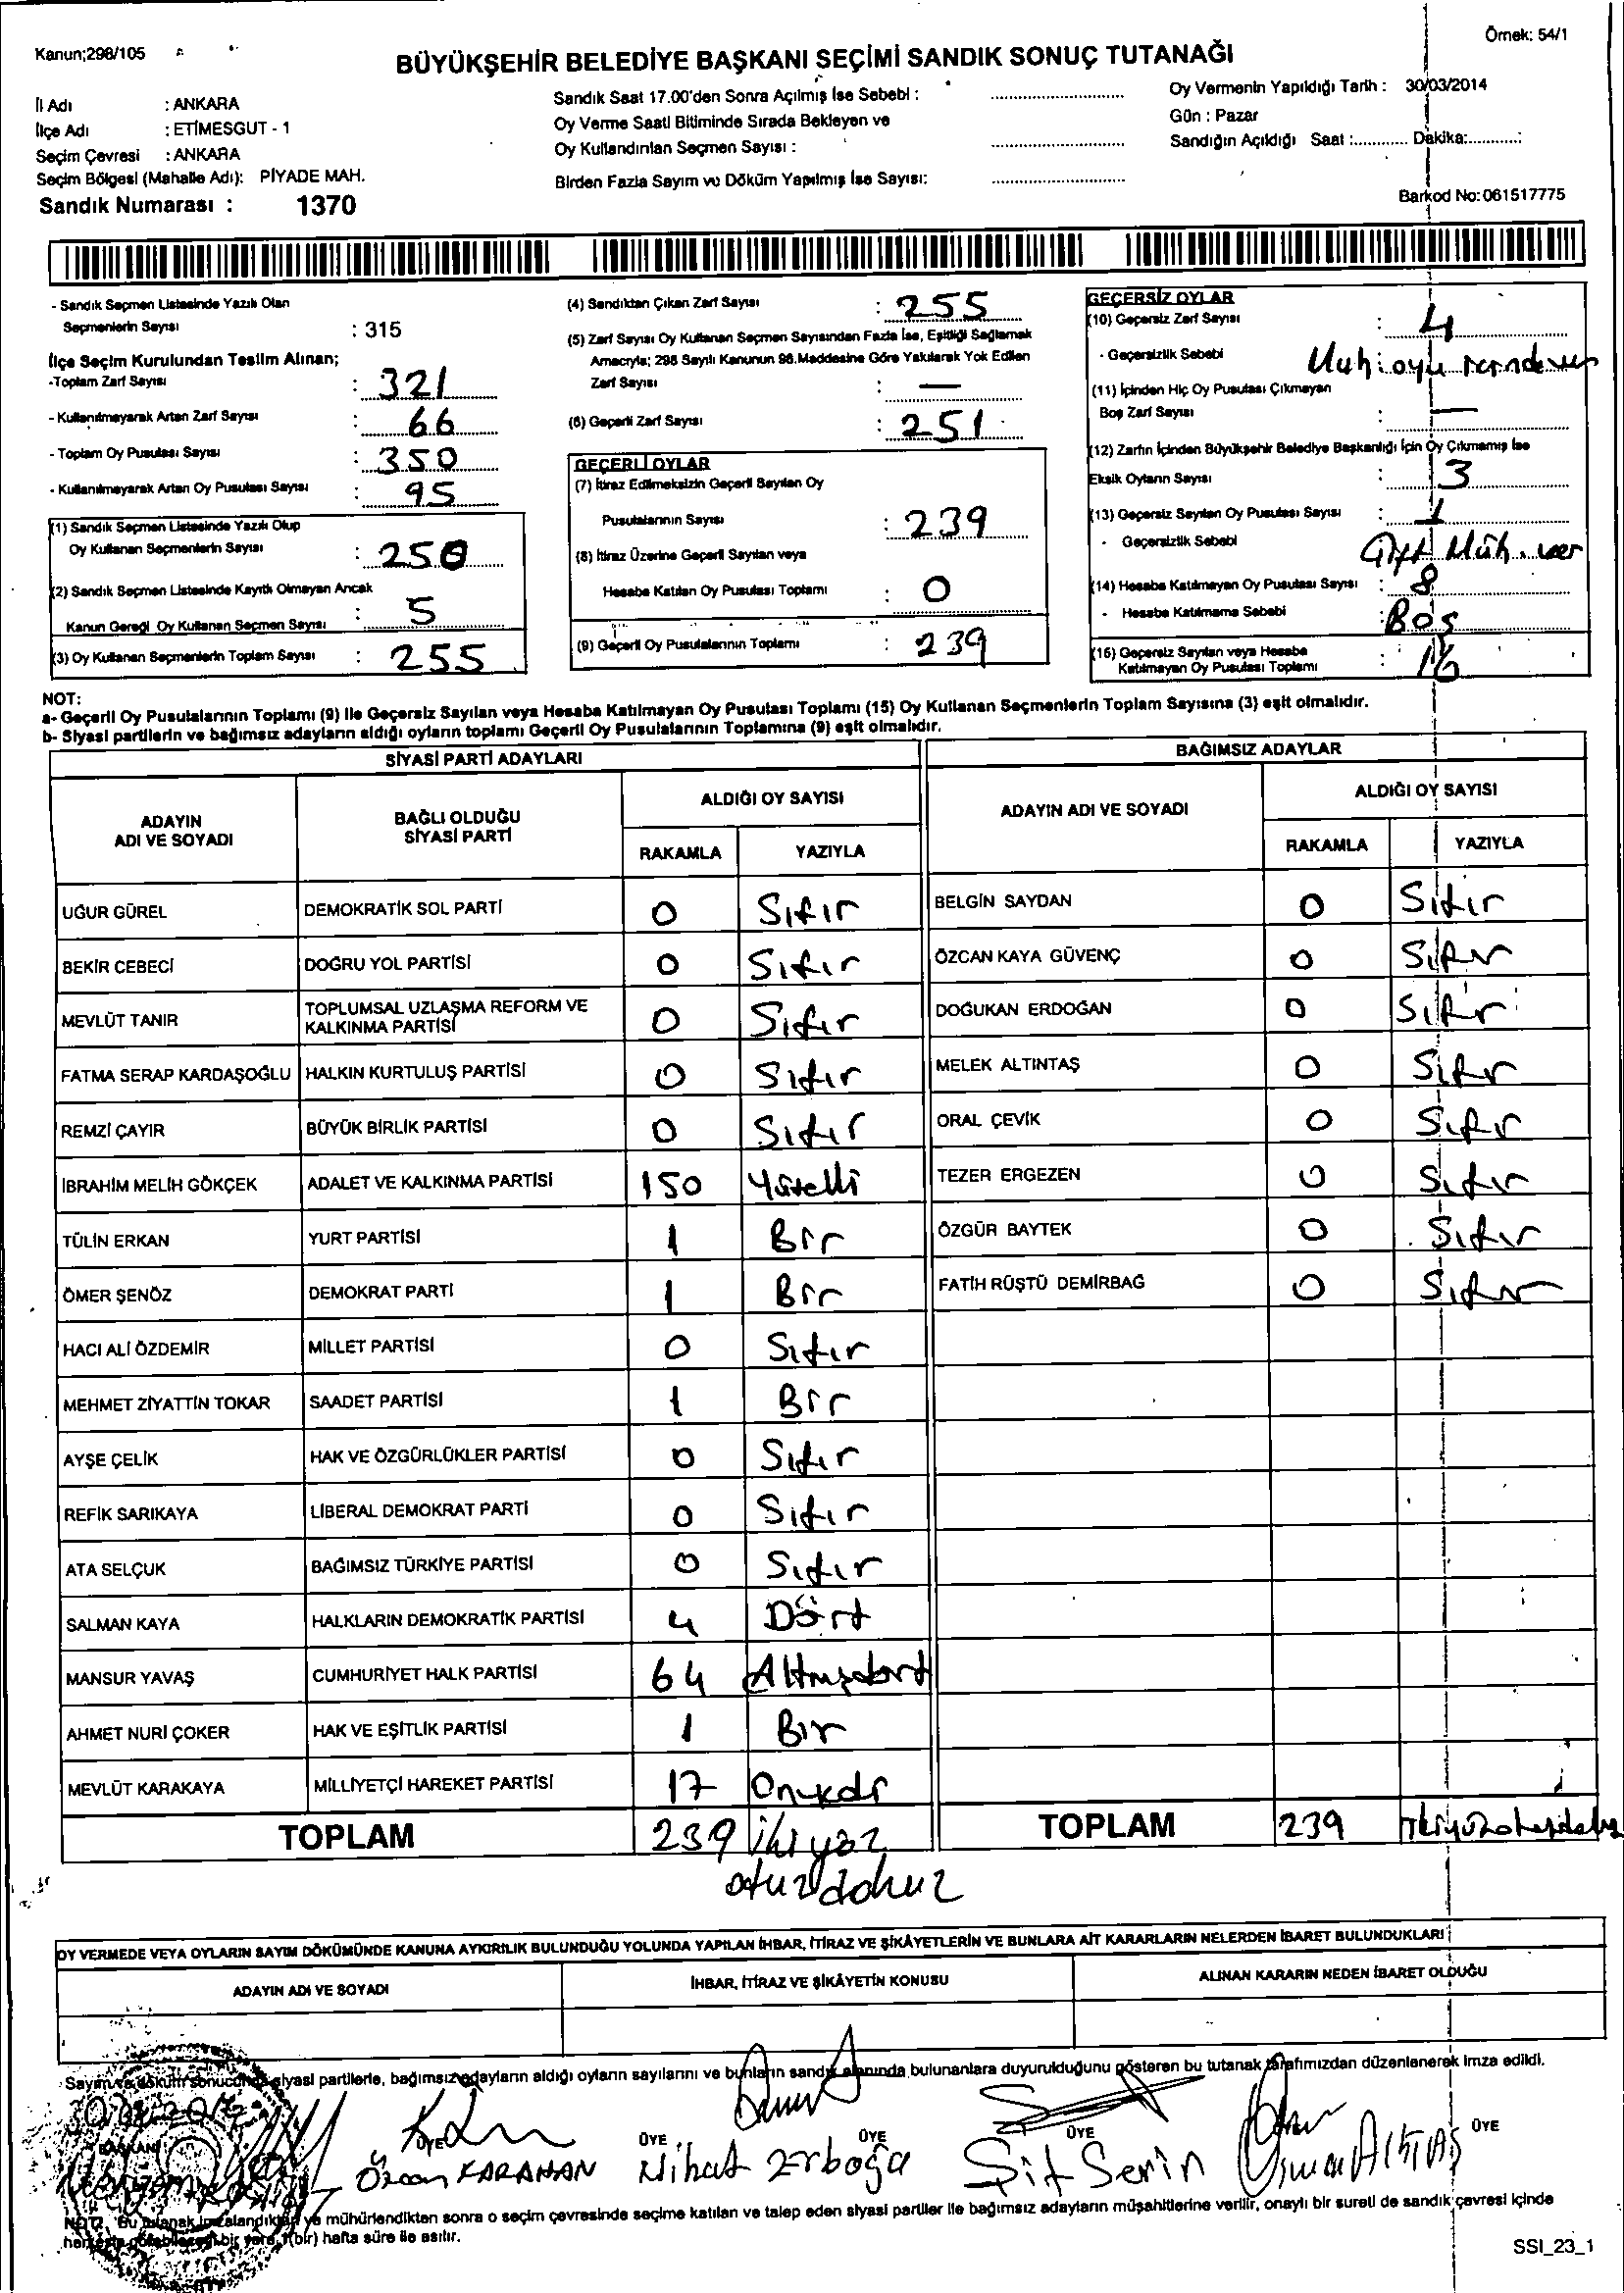 Kanun;298/105
Örnek: 54/1
BÜYÜKŞEHİR BELEDİYE BAŞKANI SEÇİMİ SANDIK SONUÇ TUTANAĞI
İl Adı : ANKARA
İlçe Adı : ETİMESGUT - 1
Seçim Çevresi : ANKARA
Seçim Bölgesi (Mahalle Adı): PİYADE MAH.
Sandık Numarası : 1370
Sandık Saat 17.00'den Sonra Açılmış İse Sebebi :
Oy Verme Saati Bitiminde Sırada Bekleyen ve
Oy Kullandırılan Seçmen Sayısı :
Birden Fazla Sayım ve Döküm Yapılmış İse Sayısı:
Oy Vermenin Yapıldığı Tarih : 30/03/2014
Gün : Pazar
Sandığın Açıldığı Saat :............ Dakika:............:
Barkod No: 061517775
- Sandık Seçmen Listesinde Yazılı Olan
Seçmenlerin Sayısı : 315
İlçe Seçim Kurulundan Teslim Alınan;
-Toplam Zarf Sayısı : 321
- Kullanılmayarak Artan Zarf Sayısı : 66
- Toplam Oy Pusulası Sayısı : 350
- Kullanılmayarak Artan Oy Pusulası Sayısı : 95
(1) Sandık Seçmen Listesinde Yazılı Olup
Oy Kullanan Seçmenlerin Sayısı : 250
(2) Sandık Seçmen Listesinde Kayıtlı Olmayan Ancak
Kanun Gereği Oy Kullanan Seçmen Sayısı : 5
(3) Oy Kullanan Seçmenlerin Toplam Sayısı : 255
(4) Sandıktan Çıkan Zarf Sayısı : 255
(5) Zarf Sayısı Oy Kullanan Seçmen Sayısından Fazla İse, Eşitliği Sağlamak
Amacıyla; 298 Sayılı Kanunun 98.Maddesine Göre Yakılarak Yok Edilen
Zarf Sayısı : —
(6) Geçerli Zarf Sayısı : 251
GEÇERLİ OYLAR
(7) İtiraz Edilmeksizin Geçerli Sayılan Oy
Pusulalarının Sayısı : 239
(8) İtiraz Üzerine Geçerli Sayılan veya
Hesaba Katılan Oy Pusulası Toplamı : 0
(9) Geçerli Oy Pusulalarının Toplamı : 239
GEÇERSİZ OYLAR
(10) Geçersiz Zarf Sayısı : 4
- Geçersizlik Sebebi
(11) İçinden Hiç Oy Pusulası Çıkmayan
Boş Zarf Sayısı : —
(12) Zarfın İçinden Büyükşehir Belediye Başkanlığı İçin Oy Çıkmamış İse
Eksik Oyların Sayısı : 3
(13) Geçersiz Sayılan Oy Pusulası Sayısı : 1
- Geçersizlik Sebebi Çift Müh.
(14) Hesaba Katılmayan Oy Pusulası Sayısı : 8
- Hesaba Katılmama Sebebi :Boş
(15) Geçersiz Sayılan veya Hesaba
Katılmayan Oy Pusulası Toplamı : 16
NOT:
a- Geçerli Oy Pusulalarının Toplamı (9) ile Geçersiz Sayılan veya Hesaba Katılmayan Oy Pusulası Toplamı (15) Oy Kullanan Seçmenlerin Toplam Sayısına (3) eşit olmalıdır.
b- Siyasi partilerin ve bağımsız adayların aldığı oyların toplamı Geçerli Oy Pusulalarının Toplamına (9) eşit olmalıdır.
SİYASİ PARTİ ADAYLARI
ADAYIN
ADI VE SOYADI
BAĞLI OLDUĞU
SİYASİ PARTİ
ALDIĞI OY SAYISI
RAKAMLA YAZIYLA
UĞUR GÜREL DEMOKRATİK SOL PARTİ 0 Sıfır
BEKİR CEBECİ DOĞRU YOL PARTİSİ 0 Sıfır
MEVLÜT TANIR TOPLUMSAL UZLAŞMA REFORM VE
KALKINMA PARTİSİ 0 Sıfır
FATMA SERAP KARDAŞOĞLU HALKIN KURTULUŞ PARTİSİ 0 Sıfır
REMZİ ÇAYIR BÜYÜK BİRLİK PARTİSİ 0 Sıfır
İBRAHİM MELİH GÖKÇEK ADALET VE KALKINMA PARTİSİ 150 Yüzelli
TÜLİN ERKAN YURT PARTİSİ 1 Bir
ÖMER ŞENÖZ DEMOKRAT PARTİ 1 Bir
HACI ALİ ÖZDEMİR MİLLET PARTİSİ 0 Sıfır
MEHMET ZİYATTİN TOKAR SAADET PARTİSİ 1 Bir
AYŞE ÇELİK HAK VE ÖZGÜRLÜKLER PARTİSİ 0 Sıfır
REFİK SARIKAYA LİBERAL DEMOKRAT PARTİ 0 Sıfır
ATA SELÇUK BAĞIMSIZ TÜRKİYE PARTİSİ 0 Sıfır
SALMAN KAYA HALKLARIN DEMOKRATİK PARTİSİ 4 Dört
MANSUR YAVAŞ CUMHURİYET HALK PARTİSİ 64 Altmışdört
AHMET NURİ ÇOKER HAK VE EŞİTLİK PARTİSİ 1 Bir
MEVLÜT KARAKAYA MİLLİYETÇİ HAREKET PARTİSİ 17 Onyedi
TOPLAM 239 ikiyüz
otuzdokuz
BAĞIMSIZ ADAYLAR
ADAYIN ADI VE SOYADI
ALDIĞI OY SAYISI
RAKAMLA YAZIYLA
BELGİN SAYDAN 0 Sıfır
ÖZCAN KAYA GÜVENÇ 0 Sıfır
DOĞUKAN ERDOĞAN 0 Sıfır
MELEK ALTINTAŞ 0 Sıfır
ORAL ÇEVİK 0 Sıfır
TEZER ERGEZEN 0 Sıfır
ÖZGÜR BAYTEK 0 Sıfır
FATİH RÜŞTÜ DEMİRBAĞ 0 Sıfır
TOPLAM 239 ikiyüzotuzdokuz
OY VERMEDE VEYA OYLARIN SAYIM DÖKÜMÜNDE KANUNA AYKIRILIK BULUNDUĞU YOLUNDA YAPILAN İHBAR, İTİRAZ VE ŞİKÂYETLERİN VE BUNLARA AİT KARARLARIN NELERDEN İBARET BULUNDUKLARI
ADAYIN ADI VE SOYADI İHBAR, İTİRAZ VE ŞİKÂYETİN KONUSU ALINAN KARARIN NEDEN İBARET OLDUĞU
Sayım ve döküm sonucunda siyasi partilerle, bağımsız adayların aldığı oyların sayılarını ve bunların sandık alanında bulunanlara duyurulduğunu gösteren bu tutanak tarafımızdan düzenlenerek imza edildi.
BAŞKAN ÜYE ÜYE ÜYE ÜYE ÜYE
Özcan KARAHAN Nihat Erboğa Şit Serin Osman Aktaş
NOT: Bu tutanak imzalandıktan ve mühürlendikten sonra o seçim çevresinde seçime katılan ve talep eden siyasi partiler ile bağımsız adayların müşahitlerine verilir, onaylı bir sureti de sandık çevresi içinde
herkesin görebileceği bir yere, 1(bir) hafta süre ile asılır.
SSI_23_1